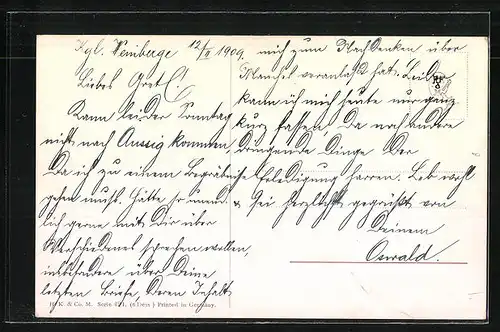 Kgl. Weinberge 12/II 1909.
Liebes Gretl!
Kann leider Sonntag
nicht nach Aussig kommen,
Da ich zu einem Begräbniße
gehen muß. Hätte so
lich gerne mit Dir über
Verschiedenes sprechen wollen,
insbesondere über Deine
letzten Briefe, deren Inhalt
mich zum Nachdenken über
Manches veranlaßt hat. Leider
kann ich mich heute nur ganz
kurz fassen, Da noch andere
dringende Dinge Der
Erledigung harren. Leb wohl
& sei herzlichst gegrüßt von
Deinem
Oswald.
H. K. & Co. M. Serie (6 Dess.) Printed in Germany.